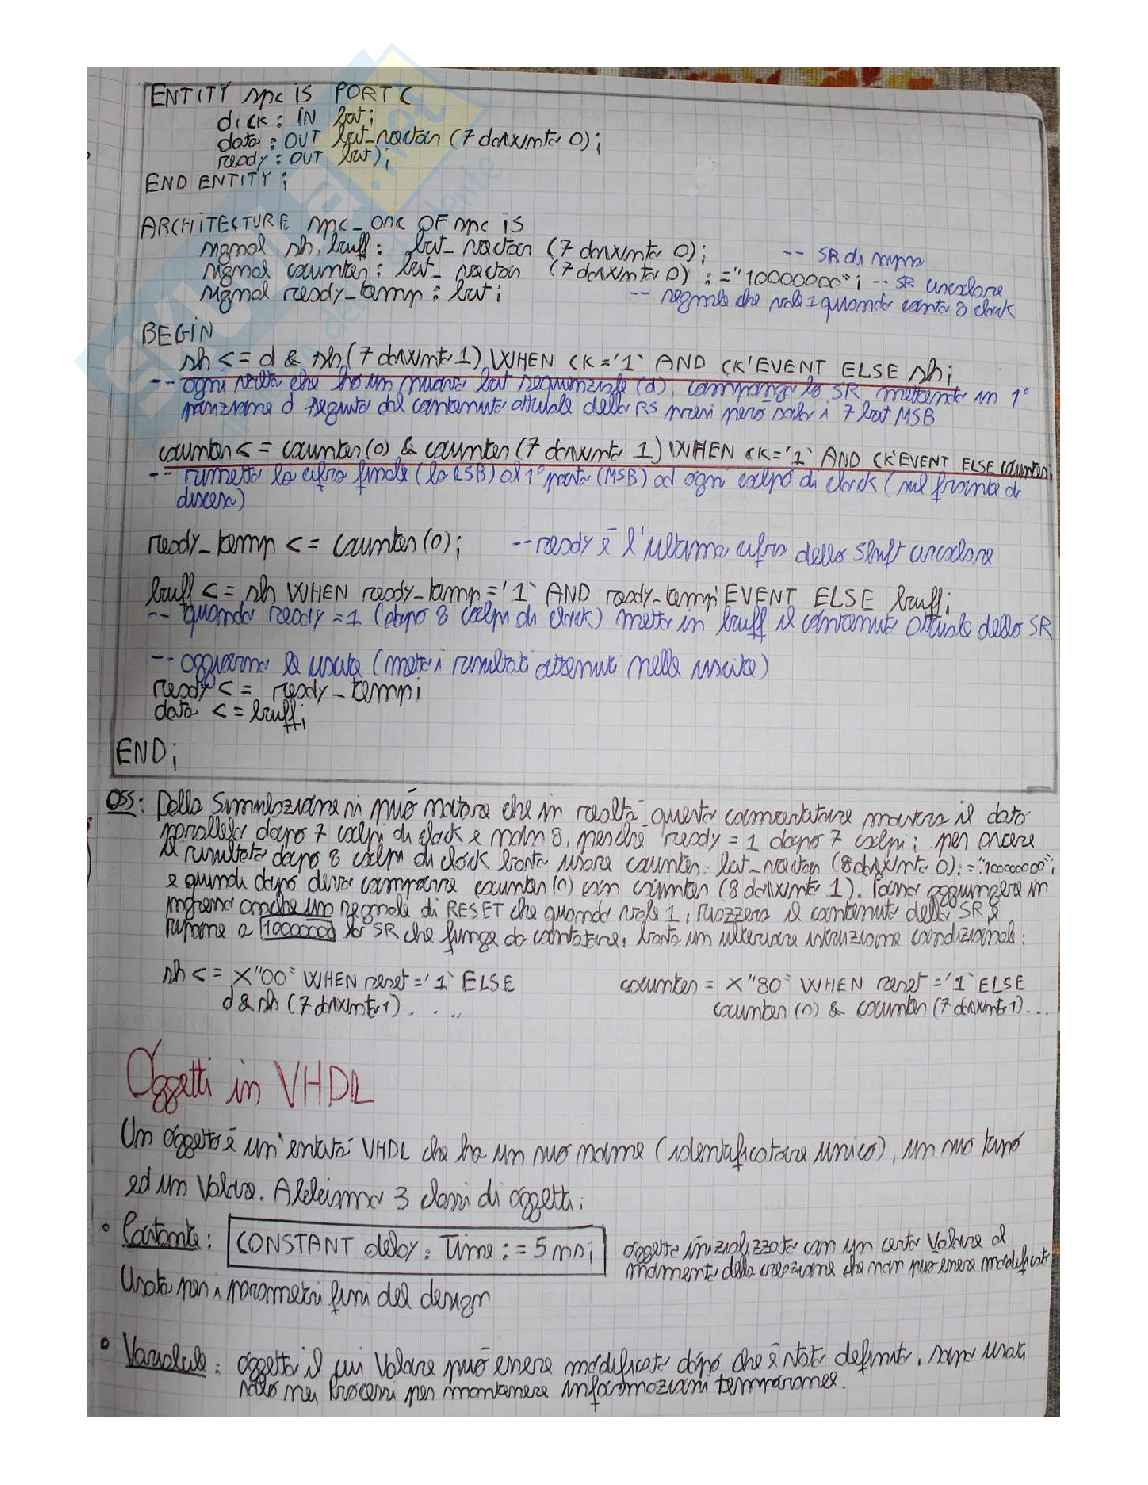 ENTITY spc IS PORT (
d,ck : IN bit;
data : OUT bit_vector (7 downto 0);
ready : OUT bit);
END ENTITY;
ARCHITECTURE spc_one OF spc IS
signal sh, buff : bit_vector (7 downto 0); -- SR di spc
signal counter : bit_vector (7 downto 0) := "10000000"; -- SR circolare
signal ready_temp : bit; -- segnale che vale 1 quando conta 8 clock
BEGIN
sh <= d & sh(7 downto 1) WHEN ck='1' AND ck'EVENT ELSE sh;
-- ogni volta che ho un nuovo bit sequenziale (d), compongo lo SR mettendo in 1°
posizione d seguito dal contenuto attuale dello RS presi però solo i 7 bit MSB
counter <= counter(0) & counter(7 downto 1) WHEN ck='1' AND ck'EVENT ELSE counter;
-- rimetto la cifra finale (lo LSB) al 1° posto (MSB) ad ogni colpo di clock (sul fronte di
discesa)
ready_temp <= counter(0); -- ready è l'ultima cifra dello shift circolare
buff <= sh WHEN ready_temp='1' AND ready_temp'EVENT ELSE buff;
-- quando ready=1 (dopo 8 colpi di clock) mette in buff il contenuto attuale dello SR
-- aggiorno le uscite (metto i risultati ottenuti nelle uscite)
ready <= ready_temp;
data <= buff;
END;
OSS: Dalla Simulazione si può notare che in realtà questo commutatore mostra il dato
parallelo dopo 7 colpi di clock e non 8, perché ready=1 dopo 7 colpi; per avere
il risultato dopo 8 colpi di clock basta usare counter: bit_vector (8 downto 0) := "10000000";
e quindi dopo deve comparire counter(0) con counter (8 downto 1). Posso aggiungere in
ingresso anche un segnale di RESET che quando vale 1, riazzera il contenuto dello SR e
ripone a 10000000 lo SR che funge da contatore, basta un ulteriore istruzione condizionale:
sh <= X"00" WHEN reset='1' ELSE counter = X"80" WHEN reset='1' ELSE
d & sh (7 downto 1) ..... counter (0) & counter (7 downto 1)...
Oggetti in VHDL
Un oggetto è un'entità VHDL che ha un suo nome (identificatore unico), un suo tipo
ed un Valore. Abbiamo 3 classi di oggetti:
• Costante: CONSTANT delay : Time := 5 ns; oggetto inizializzato con un certo Valore al
momento della creazione che non può essere modificato
Usata per i parametri fissi del design
• Variabile: oggetto il cui Valore può essere modificato dopo che è stato definito, sono usati
solo nei Processi per mantenere informazioni temporanee.